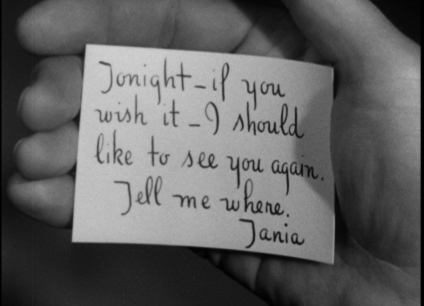 Tonight - if you
wish it - I should
like to see you again.
Tell me where.
Tania